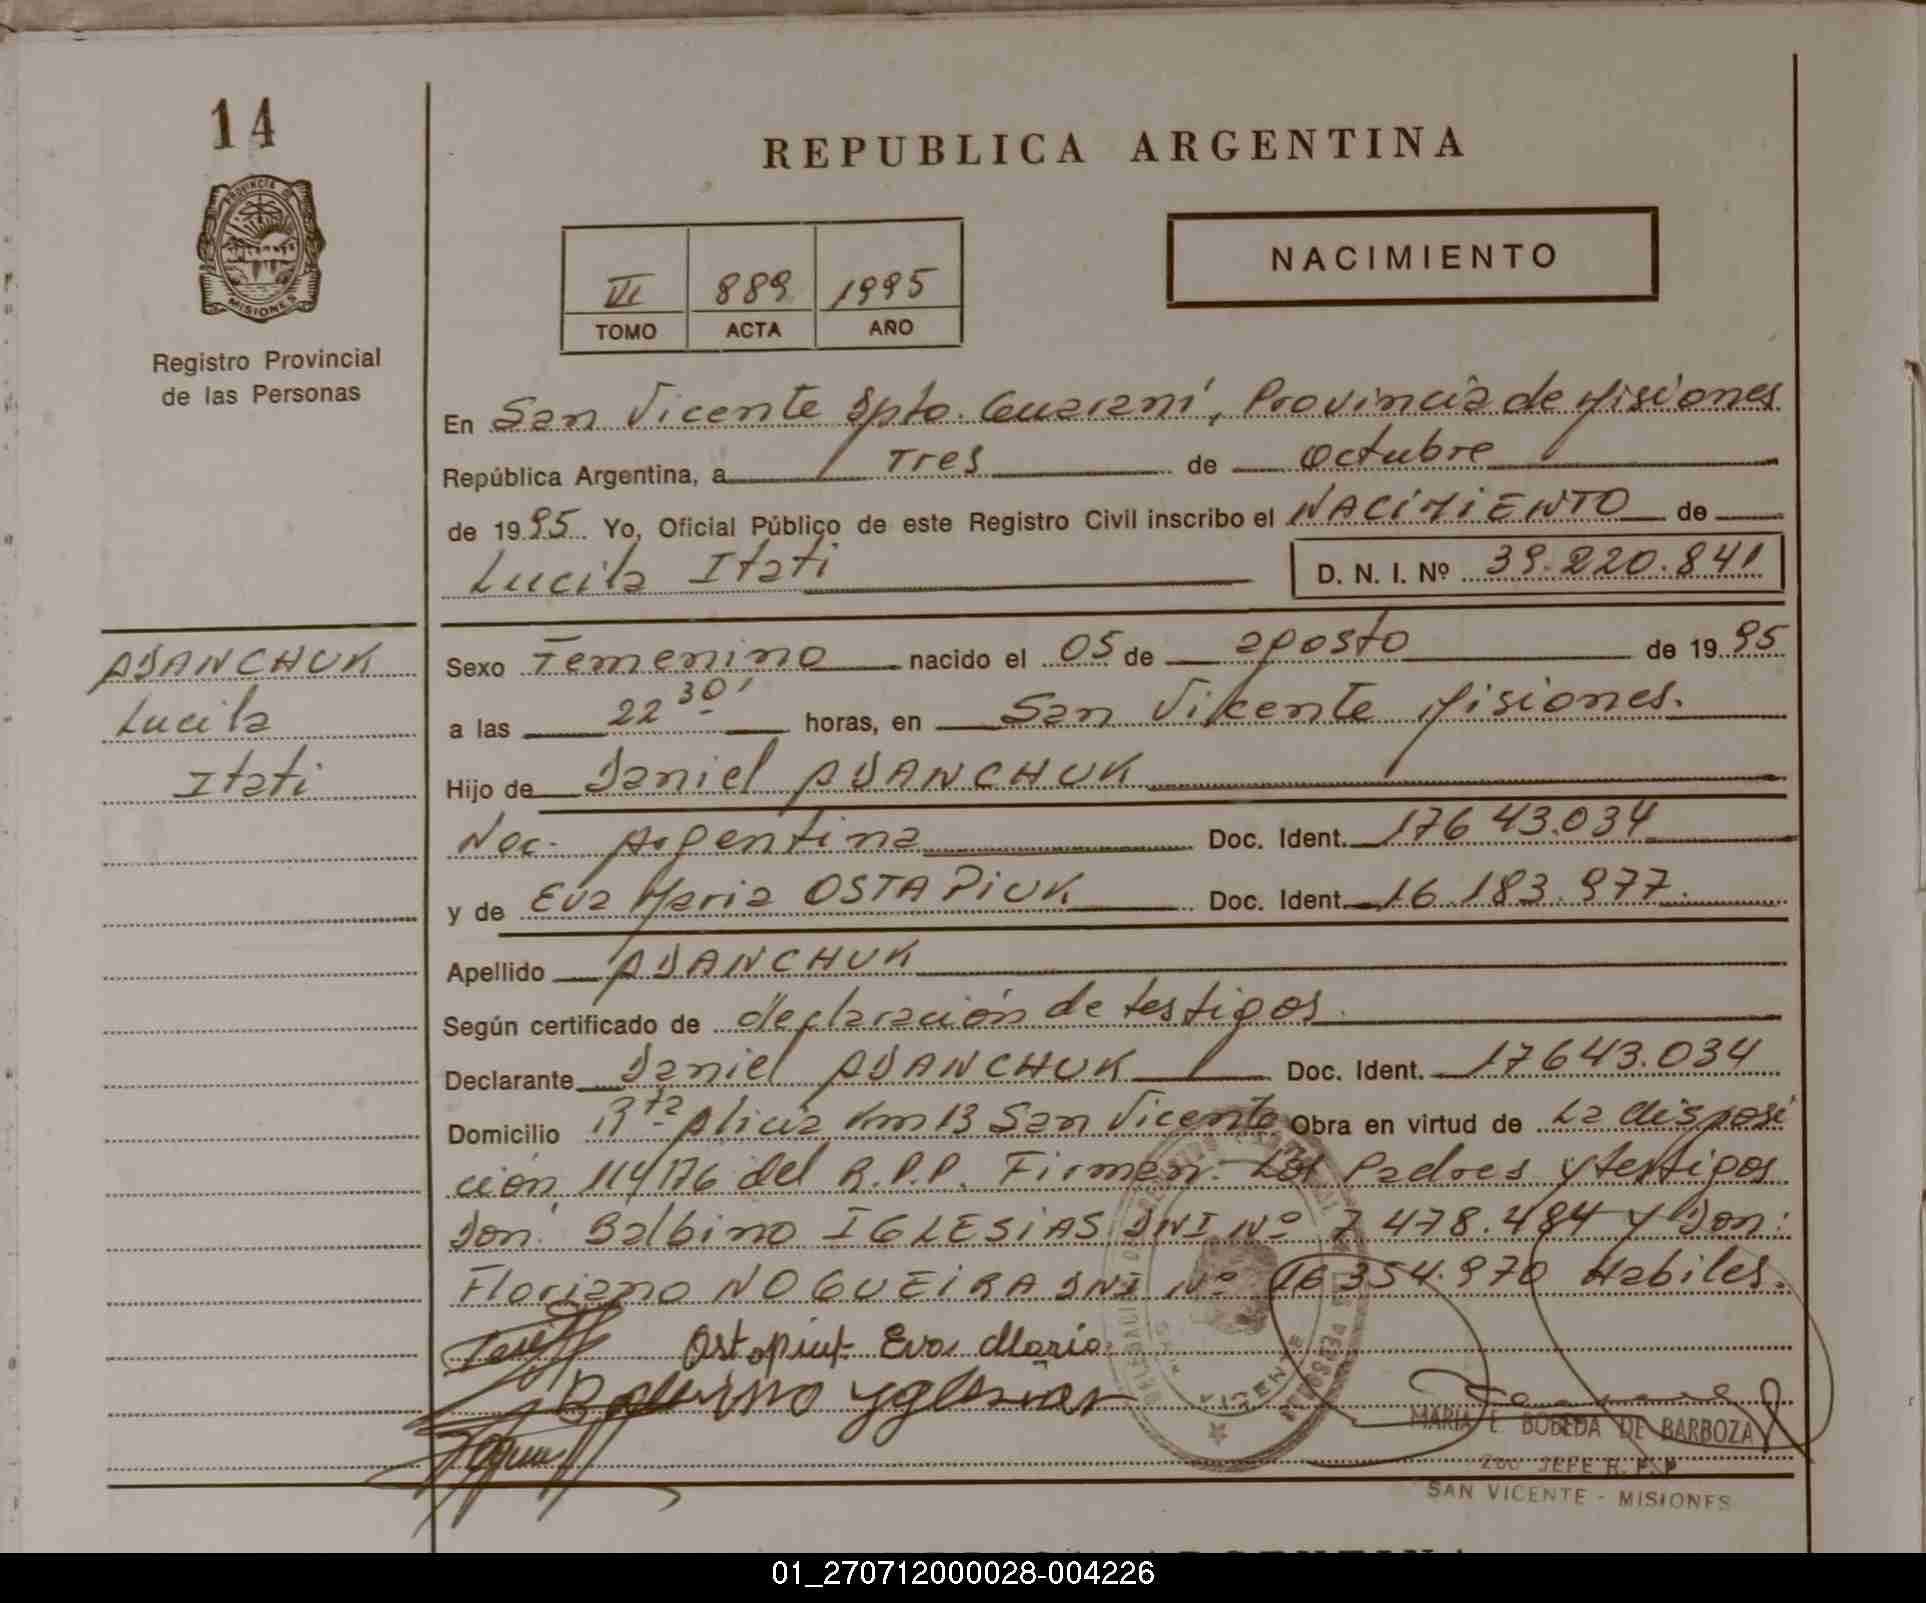 14
PROVINCIA DE
MISIONES
Registro Provincial
de las Personas
REPUBLICA ARGENTINA
NACIMIENTO
VI 889 1995
TOMO ACTA AÑO
En San Vicente Dpto. Guarani, Provincia de Misiones
República Argentina, a Tres de Octubre
de 1995 Yo, Oficial Público de este Registro Civil inscribo el NACIMIENTO de
Lucila Itati D. N. I. Nº 39.220.841
ADANCHUK
Lucila
Itati
Sexo Femenino nacido el 05 de agosto de 1995
a las 22 30' horas, en San Vicente Misiones.
Hijo de Daniel ADANCHUK
Nac. Argentina Doc. Ident. 17643.034
y de Eva Maria OSTAPIUK Doc. Ident. 16.183.977.
Apellido ADANCHUK
Según certificado de declaración de testigos.
Declarante Daniel ADANCHUK Doc. Ident. 17643.034
Domicilio Rta Alicia Km 13 San Vicente Obra en virtud de La disposi
ción 114/76 del R.P.P. Firman: Los Padres y testigos
Don: Balbino IGLESIAS DNI Nº 7.478.484 y Don:
Floriano NOGUEIRA DNI Nº 16354.970 Habiles.
Ostapiuk Eva Maria
Balbino Yglesias
VICENTE
MARIA E. BOBEDA DE BARBOZA
2do JEFE R. P. P
SAN VICENTE - MISIONES
01_270712000028-004226